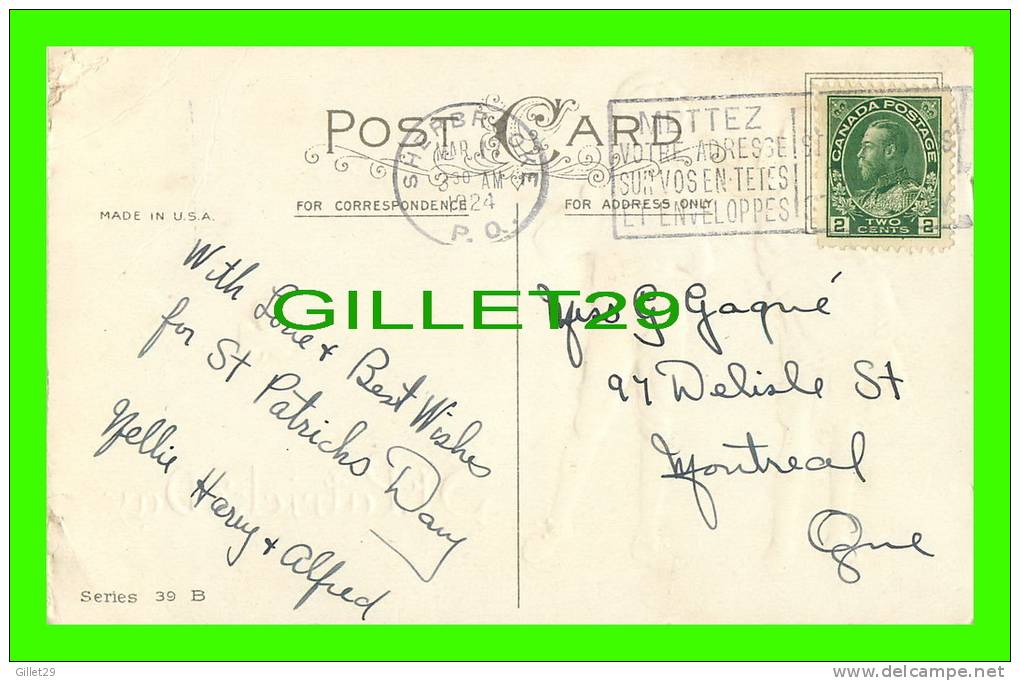 POST CARD
SHERBROOKE
MAR 1
30 AM
1924
P.Q.
METTEZ
VOTRE ADRESSE
SUR VOS EN-TETES
ET ENVELOPPES
CANADA POSTAGE
2 TWO CENTS 2
MADE IN U.S.A.
FOR CORRESPONDENCE
FOR ADDRESS ONLY
With Love & Best Wishes
for St Patricks Day
Nellie Harry & Alfred
GILLET29
Miss G Gagné
97 Delisle St
Montreal
Que
Series 39 B
Gillet29
www.delcampe.net